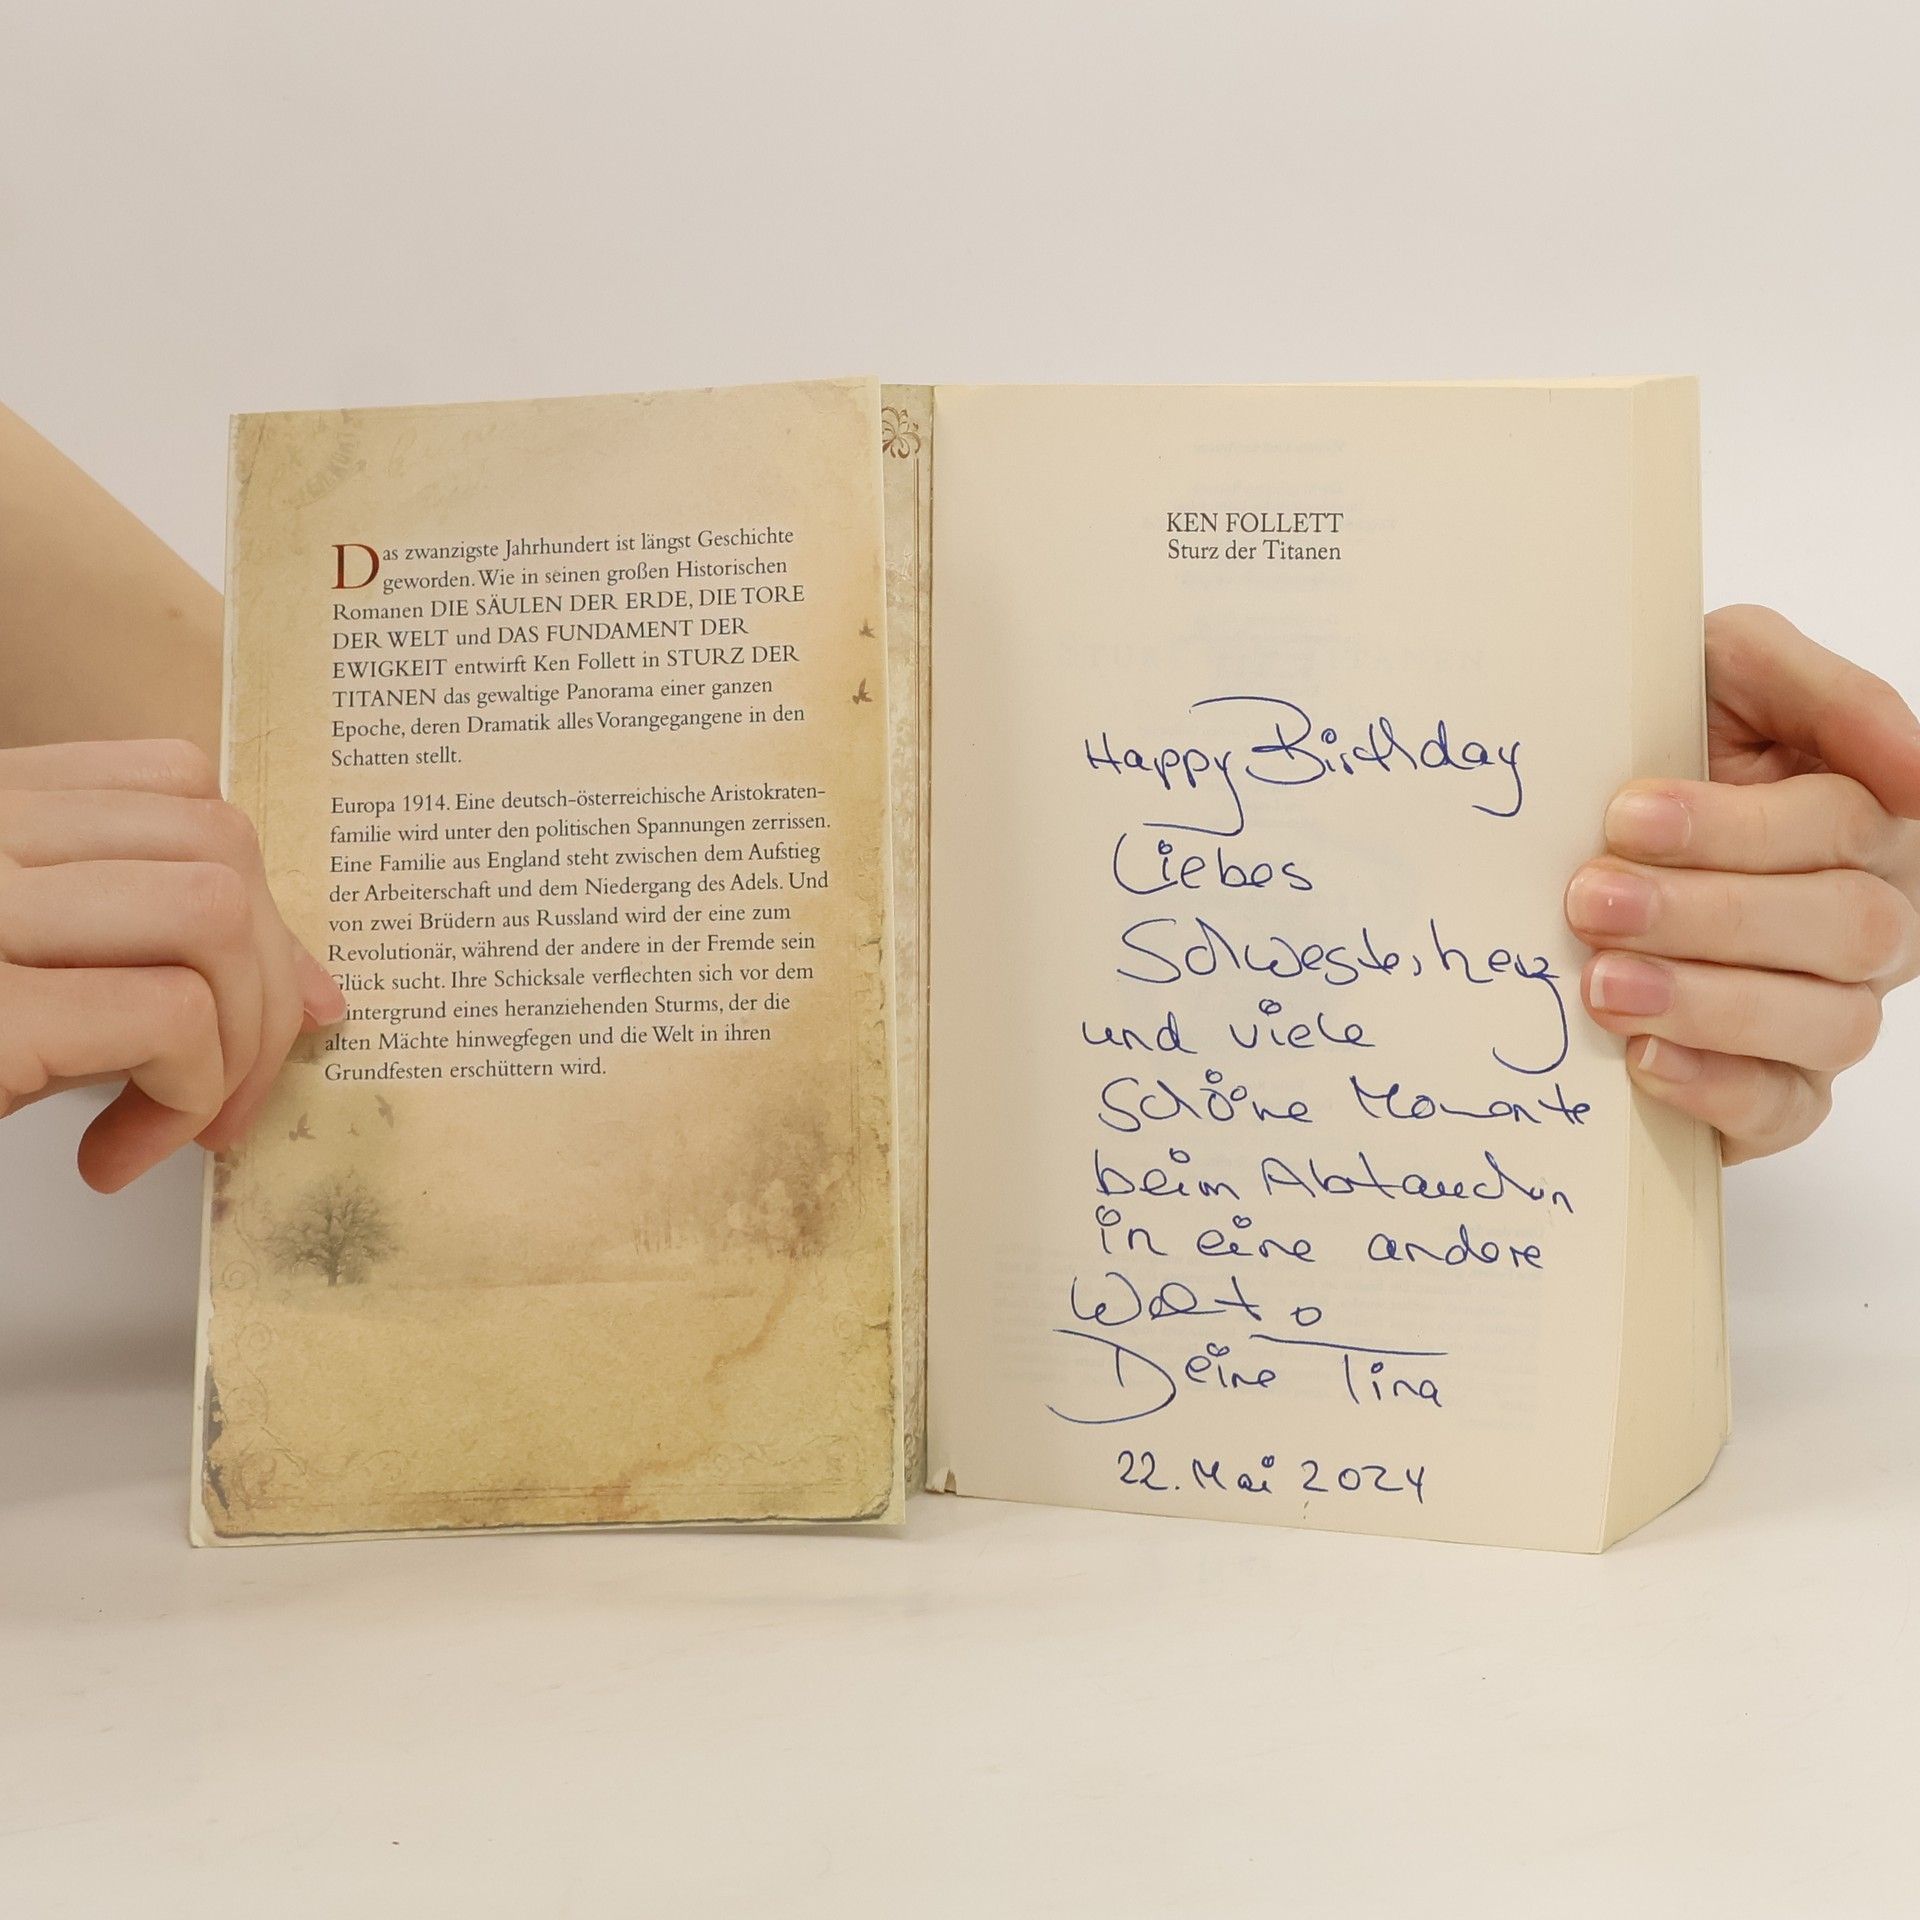 Das zwanzigste Jahrhundert ist längst Geschichte
geworden. Wie in seinen großen Historischen
Romanen DIE SÄULEN DER ERDE, DIE TORE
DER WELT und DAS FUNDAMENT DER
EWIGKEIT entwirft Ken Follett in STURZ DER
TITANEN das gewaltige Panorama einer ganzen
Epoche, deren Dramatik alles Vorangegangene in den
Schatten stellt.
Europa 1914. Eine deutsch-österreichische Aristokraten-
familie wird unter den politischen Spannungen zerrissen.
Eine Familie aus England steht zwischen dem Aufstieg
der Arbeiterschaft und dem Niedergang des Adels. Und
von zwei Brüdern aus Russland wird der eine zum
Revolutionär, während der andere in der Fremde sein
Glück sucht. Ihre Schicksale verflechten sich vor dem
intergrund eines heranziehenden Sturms, der die
alten Mächte hinwegfegen und die Welt in ihren
Grundfesten erschüttern wird.
KEN FOLLETT
Sturz der Titanen
Happy Birthday
Liebes
Schwesterherz
und viele
schöne Momente
beim Abtauchen
in eine andere
Welt.
Deine Tina
22. Mai 2024